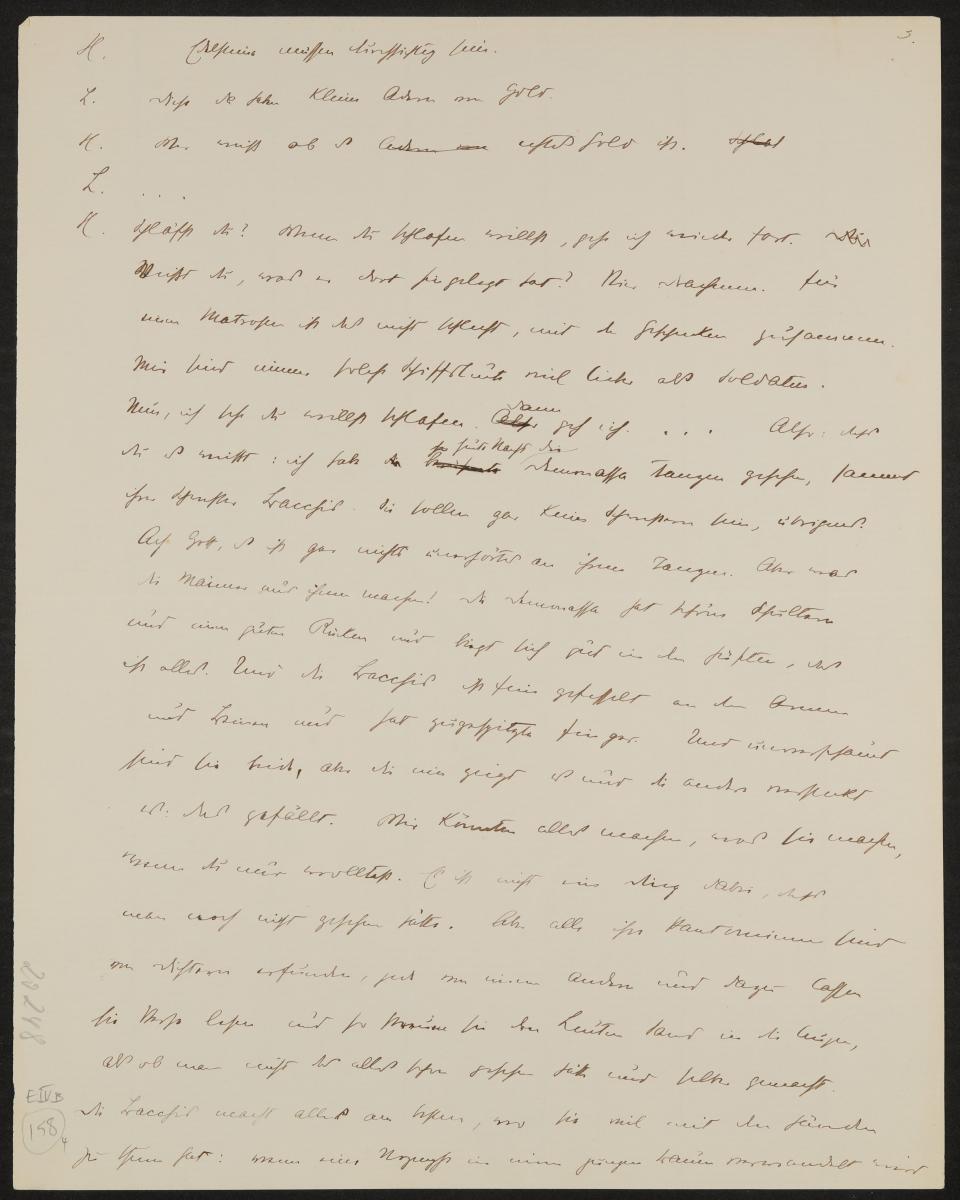 3.
H. Edelsteine müssen durchsichtig sein.
L. Diese da haben kleine Adern von Gold.
H. Wer weiß ob es Adern von echtes Gold ist.
L. . . .
H. Schläfst du? Wenn du schlafen willst, geh ich wieder fort.
Weißt du, was er dort hingelegt hat? Vier Drachmen. Für
einen Matrosen ist das nicht schlecht, mit den Geschenken zusammen.
Mir sind immer solche Schiffsleute viel lieber als Soldaten.
Nun, ich seh du willst schlafen. Also dann geh ich. . . . Also: daß
du es weißt: ich habe heute Nacht die Demonassa tanzen gesehen, sammt
ihrer Schwester Bacchis. Sie sollen gar keine Schwestern sein, übrigens.
Ach Gott, es ist gar nichts unerhörtes an ihrem Tanzen. Aber was
die Männer aus ihnen machen! Die Demonassa hat schöne Schultern
und einen guten Rücken und biegt sich gut in den Hüften, das
ist alles. Und die Bacchis ist fein gefesselt an den Armen
und Beinen und hat zugespitzte Finger. Und unverschämt
sind sie beide, aber die eine zeigt es und die andere versteckt
es: das gefällt. Wir könnten alles machen, was sie machen,
wenn du nur wolltest. Es ist nicht ein Ding dabei, daß
man noch nicht gesehen hätte. Aber alle ihre Pantomimen sind
von Dichtern erfunden, jede von einem andern und dazu lassen
sie Verse lesen und so streuen sie den Leuten Sand in die Augen,
als ob man nicht das alles schon gesehen hätte und selber gemacht.
Die Bacchis macht alles am besten, wo sie viel mit den Händen
zu thun hat: wenn eine Nymphe in einen jungen Baum verwandelt wird
20248
EIVB
158
4